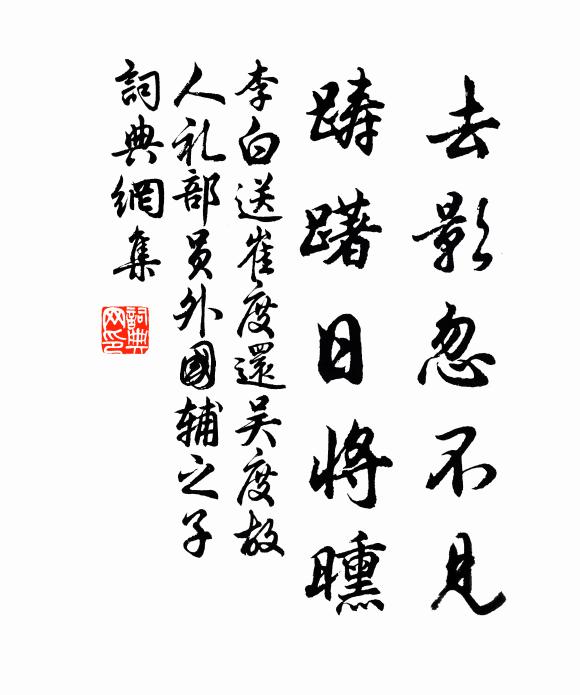 去影忽不見
躊躇日將曛
李白送崔度還吴度故
人礼部员外國輔之子
詞典網集
詞典
网印